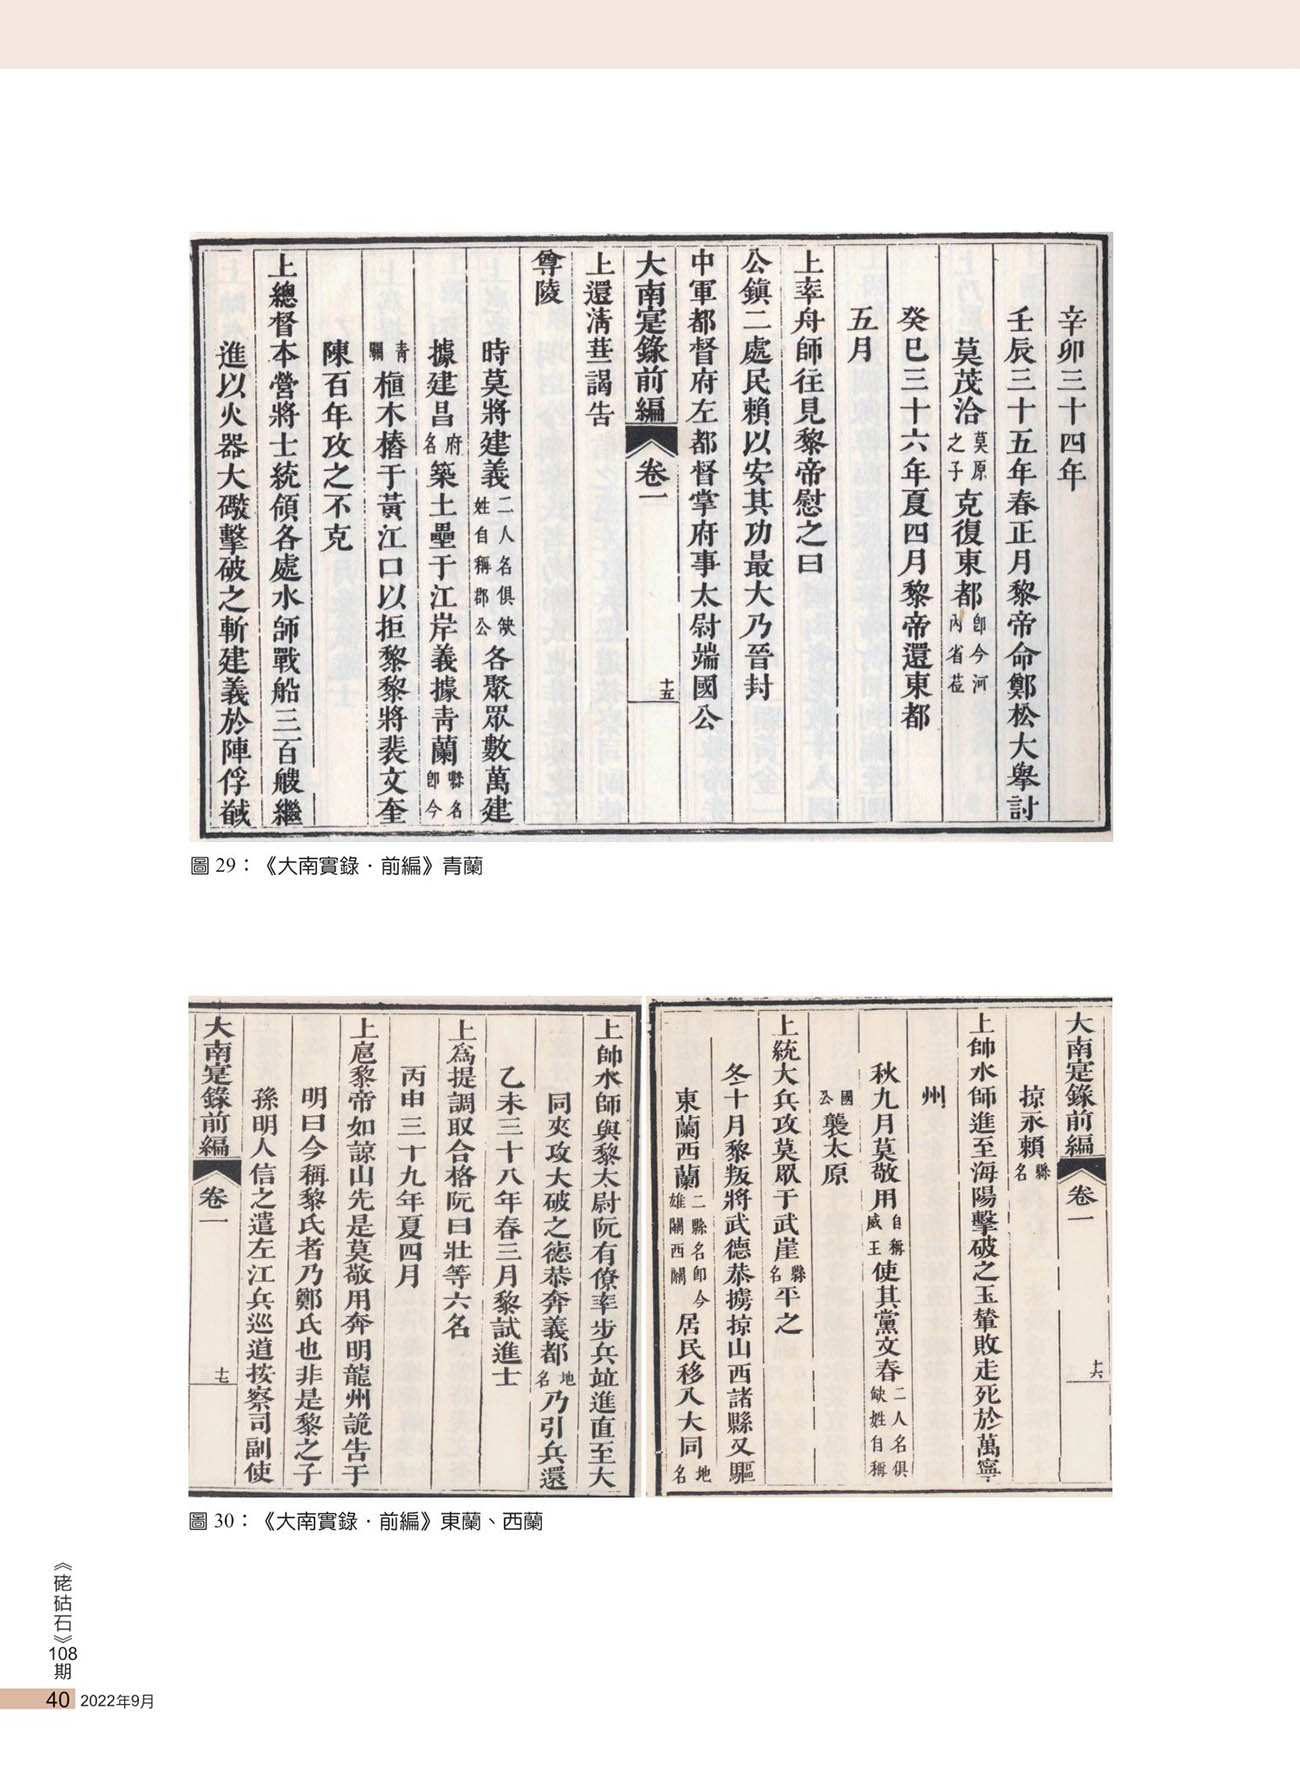 辛卯三十四年
壬辰三十五年春正月黎帝命鄭松大舉討
莫茂洽莫原之子克復東都卽今河內省莅
癸巳三十六年夏四月黎帝還東都
五月
上率舟師往見黎帝慰之曰
公鎮二處民賴以安其功最大乃晉封
中軍都督府左都督掌府事太尉端國公
大南寔錄前編 卷一 十五
上還淸華謁告
尊陵
時莫將建義二人名俱缺姓自稱郡公各聚眾數萬建
據建昌府名築土壘于江岸義據青蘭縣名卽今
青關植木樁于黃江口以拒黎黎將裴文奎
陳百年攻之不克
上總督本營將士統領各處水師戰船三百艘繼
進以火器大礮擊破之斬建義於陣俘馘
圖 29：《大南實錄．前編》青蘭
大南寔錄前編 卷一 十六
掠永賴縣名
上帥水師進至海陽擊破之玉輦敗走死於萬寧
州
秋九月莫敬用自稱威王使其黨文春二人名俱缺姓自稱
國公襲太原
上統大兵攻莫眾于武崖縣名平之
冬十月黎叛將武德恭擄掠山西諸縣又驅
東蘭西蘭二縣名卽今雄關西關居民移入大同地名
上帥水師與黎太尉阮有僚率步兵竝進直至大
同夾攻大破之德恭奔義都地名乃引兵還
乙未三十八年春三月黎試進士
上為提調取合格阮曰壯等六名
丙申三十九年夏四月
上扈黎帝如諒山先是莫敬用奔明龍州詭告于
明曰今稱黎氏者乃鄭氏也非是黎之子
孫明人信之遣左江兵巡道按察司副使
大南寔錄前編 卷一 十七
圖 30：《大南實錄．前編》東蘭、西蘭
《硓𥑮石》108期
40 2022年9月